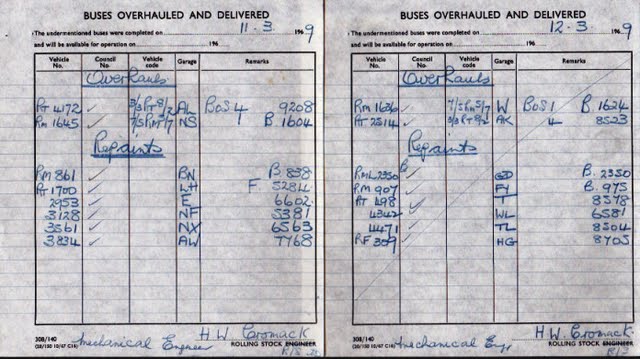 BUSES OVERHAULED AND DELIVERED
The undermentioned buses were completed on 11-3. 1969
and will be available for operation on 196
Vehicle No. Council No. Vehicle code Garage Remarks
Overhauls
RT 4172 ✓ 3/6 RT 8/7/2 AL BOS 4 9208
RM 1645 ✓ 7/5 RM 7/7 NS 1 B 1604
Repaints
RM 861 ✓ BN B 838
RT 1700 ✓ LH F. 5284
2953 ✓ E 6602
3128 ✓ NF 5381
3561 ✓ NX 6563
3834 ✓ AW 7768
308/140
Mechanical Engineer H.W. Cromack
ROLLING STOCK ENGINEER
BUSES OVERHAULED AND DELIVERED
The undermentioned buses were completed on 12-3. 1969
and will be available for operation on 196
Vehicle No. Council No. Vehicle code Garage Remarks
Overhauls
RM 1636 ✓ 7/5 RM 5/7 W BOS 1 B 1624
RT 2514 ✓ 3/3 RT 8/2 AK 4 8523
Repaints
RML 2350 ✓ GD B. 2350
RM 907 ✓ FY B. 975
RT 498 ✓ T 8578
4342 ✓ WL 6581
4471 ✓ TL 8504
RF 309 ✓ HG 8705
308/140
Mechanical Engr H.W. Cromack
ROLLING STOCK ENGINEER